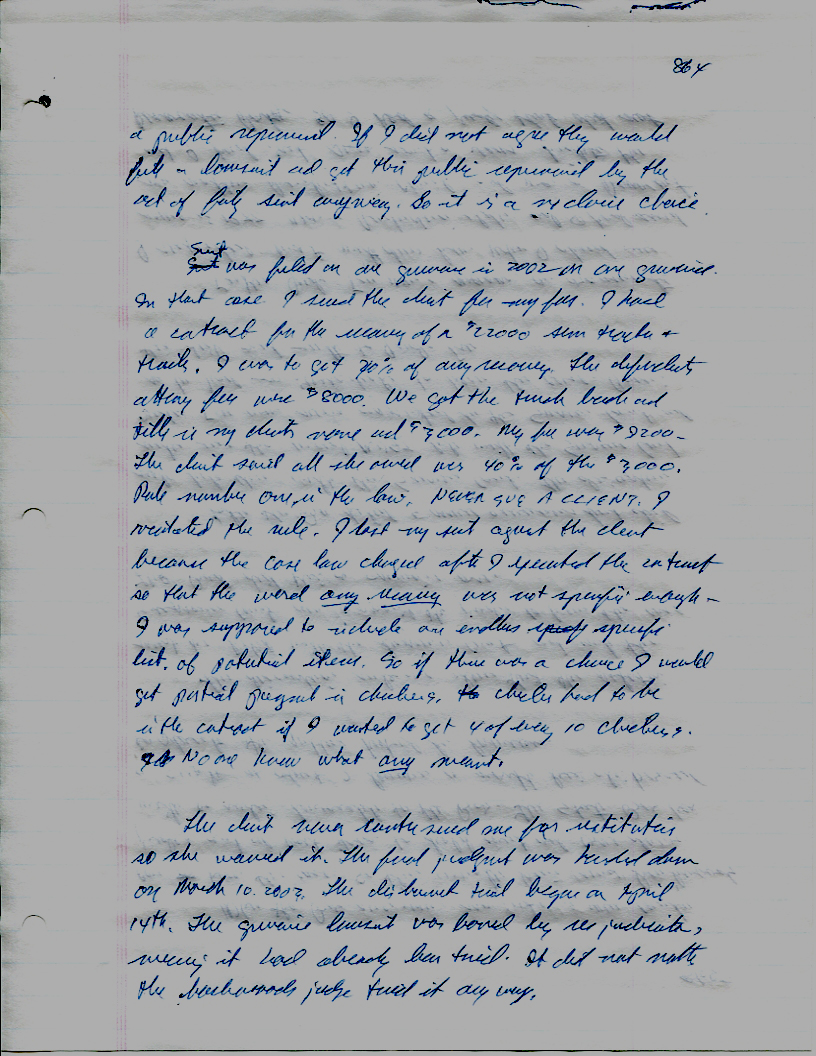 864
a public reprimand. If I did not agree they would
file a lawsuit ad get this public reprimand by the
out of Just anyway. So it is a no choice choice
Suit was filed on one grievance in 2002 on one grievance.
In that case I sued the client for my fee. I had
a contract for the recovery of a $22000 semi tractor +
trailer. I was to get 40% of any recovery. The defendants
attorney fees were $8000. We got the truck back ad
title in my clients name ad $3,000. My fee was $9200-
The client said all she owed was 40% of the $3,000.
Rule number one, in the law, NEVER SUE A CLIENT. I
violated the rule. I lost my suit against the client
because the case law changed after I executed the contract
so that the word any recovery was not specific enough -
I was supposed to include an endless specific
list, of potential items. So if there was a chance I would
get partial payment in chickens, chickens had to be
in the contract if I wanted to get 4 of every 10 chickens.
No one knew what any meant.
The client never counter sued me for restitution
so she waived it. The final judgment was handed down
on March 10. 2003. The disbarment trial began on April
14th. The grievance lawsuit was barred by res judicata,
meaning it had already been tried. It did not matter
the backwoods judge tried it any way.